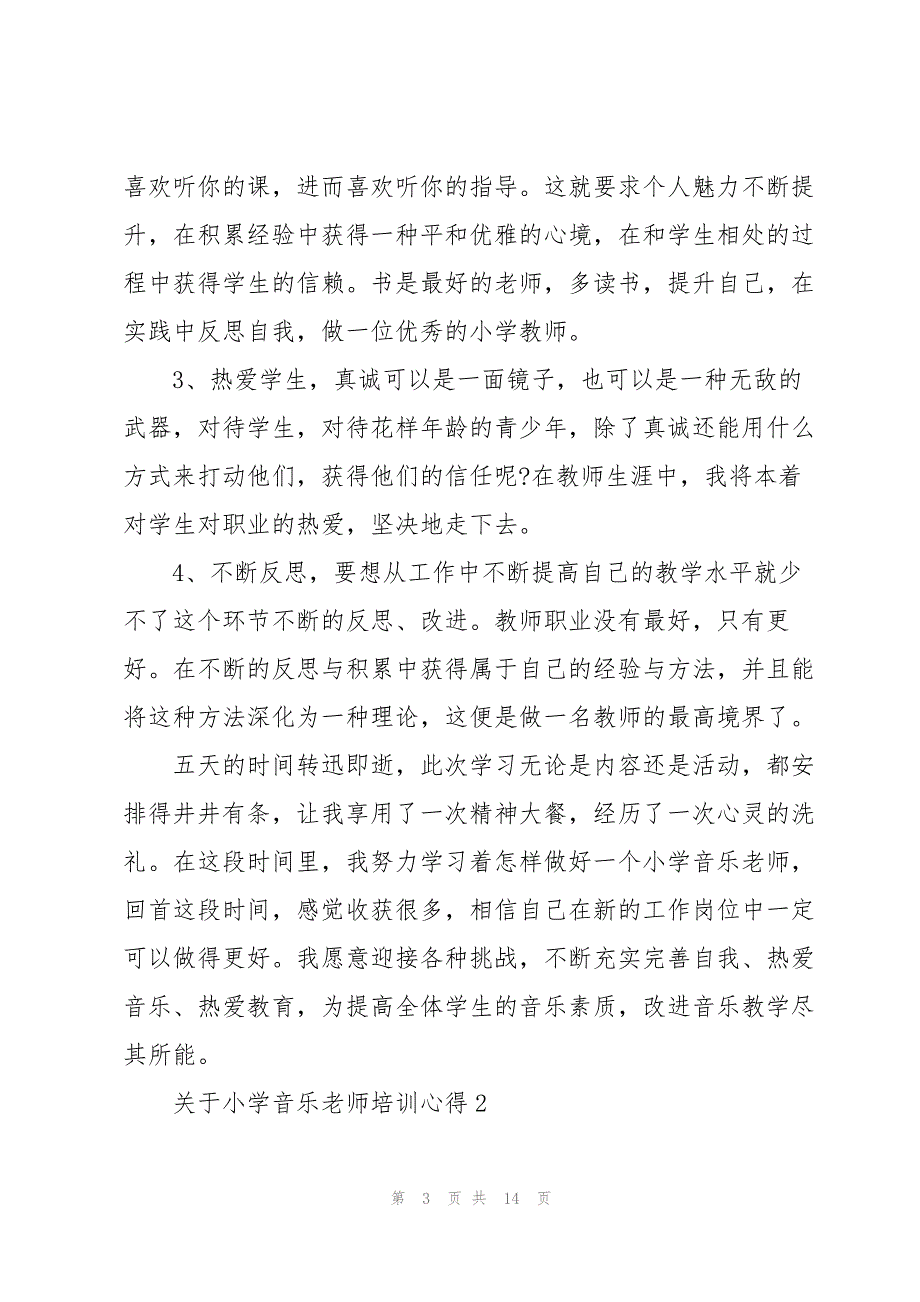 喜欢听你的课，进而喜欢听你的指导。这就要求个人魅力不断提
升，在积累经验中获得一种平和优雅的心境，在和学生相处的过
程中获得学生的信赖。书是最好的老师，多读书，提升自己，在
实践中反思自我，做一位优秀的小学教师。
3、热爱学生，真诚可以是一面镜子，也可以是一种无敌的
武器，对待学生，对待花样年龄的青少年，除了真诚还能用什么
方式来打动他们，获得他们的信任呢?在教师生涯中，我将本着
对学生对职业的热爱，坚决地走下去。
4、不断反思，要想从工作中不断提高自己的教学水平就少
不了这个环节不断的反思、改进。教师职业没有最好，只有更
好。在不断的反思与积累中获得属于自己的经验与方法，并且能
将这种方法深化为一种理论，这便是做一名教师的最高境界了。
五天的时间转迅即逝，此次学习无论是内容还是活动，都安
排得井井有条，让我享用了一次精神大餐，经历了一次心灵的洗
礼。在这段时间里，我努力学习着怎样做好一个小学音乐老师，
回首这段时间，感觉收获很多，相信自己在新的工作岗位中一定
可以做得更好。我愿意迎接各种挑战，不断充实完善自我、热爱
音乐、热爱教育，为提高全体学生的音乐素质，改进音乐教学尽
其所能。
关于小学音乐老师培训心得2
第 3 页 共 14 页